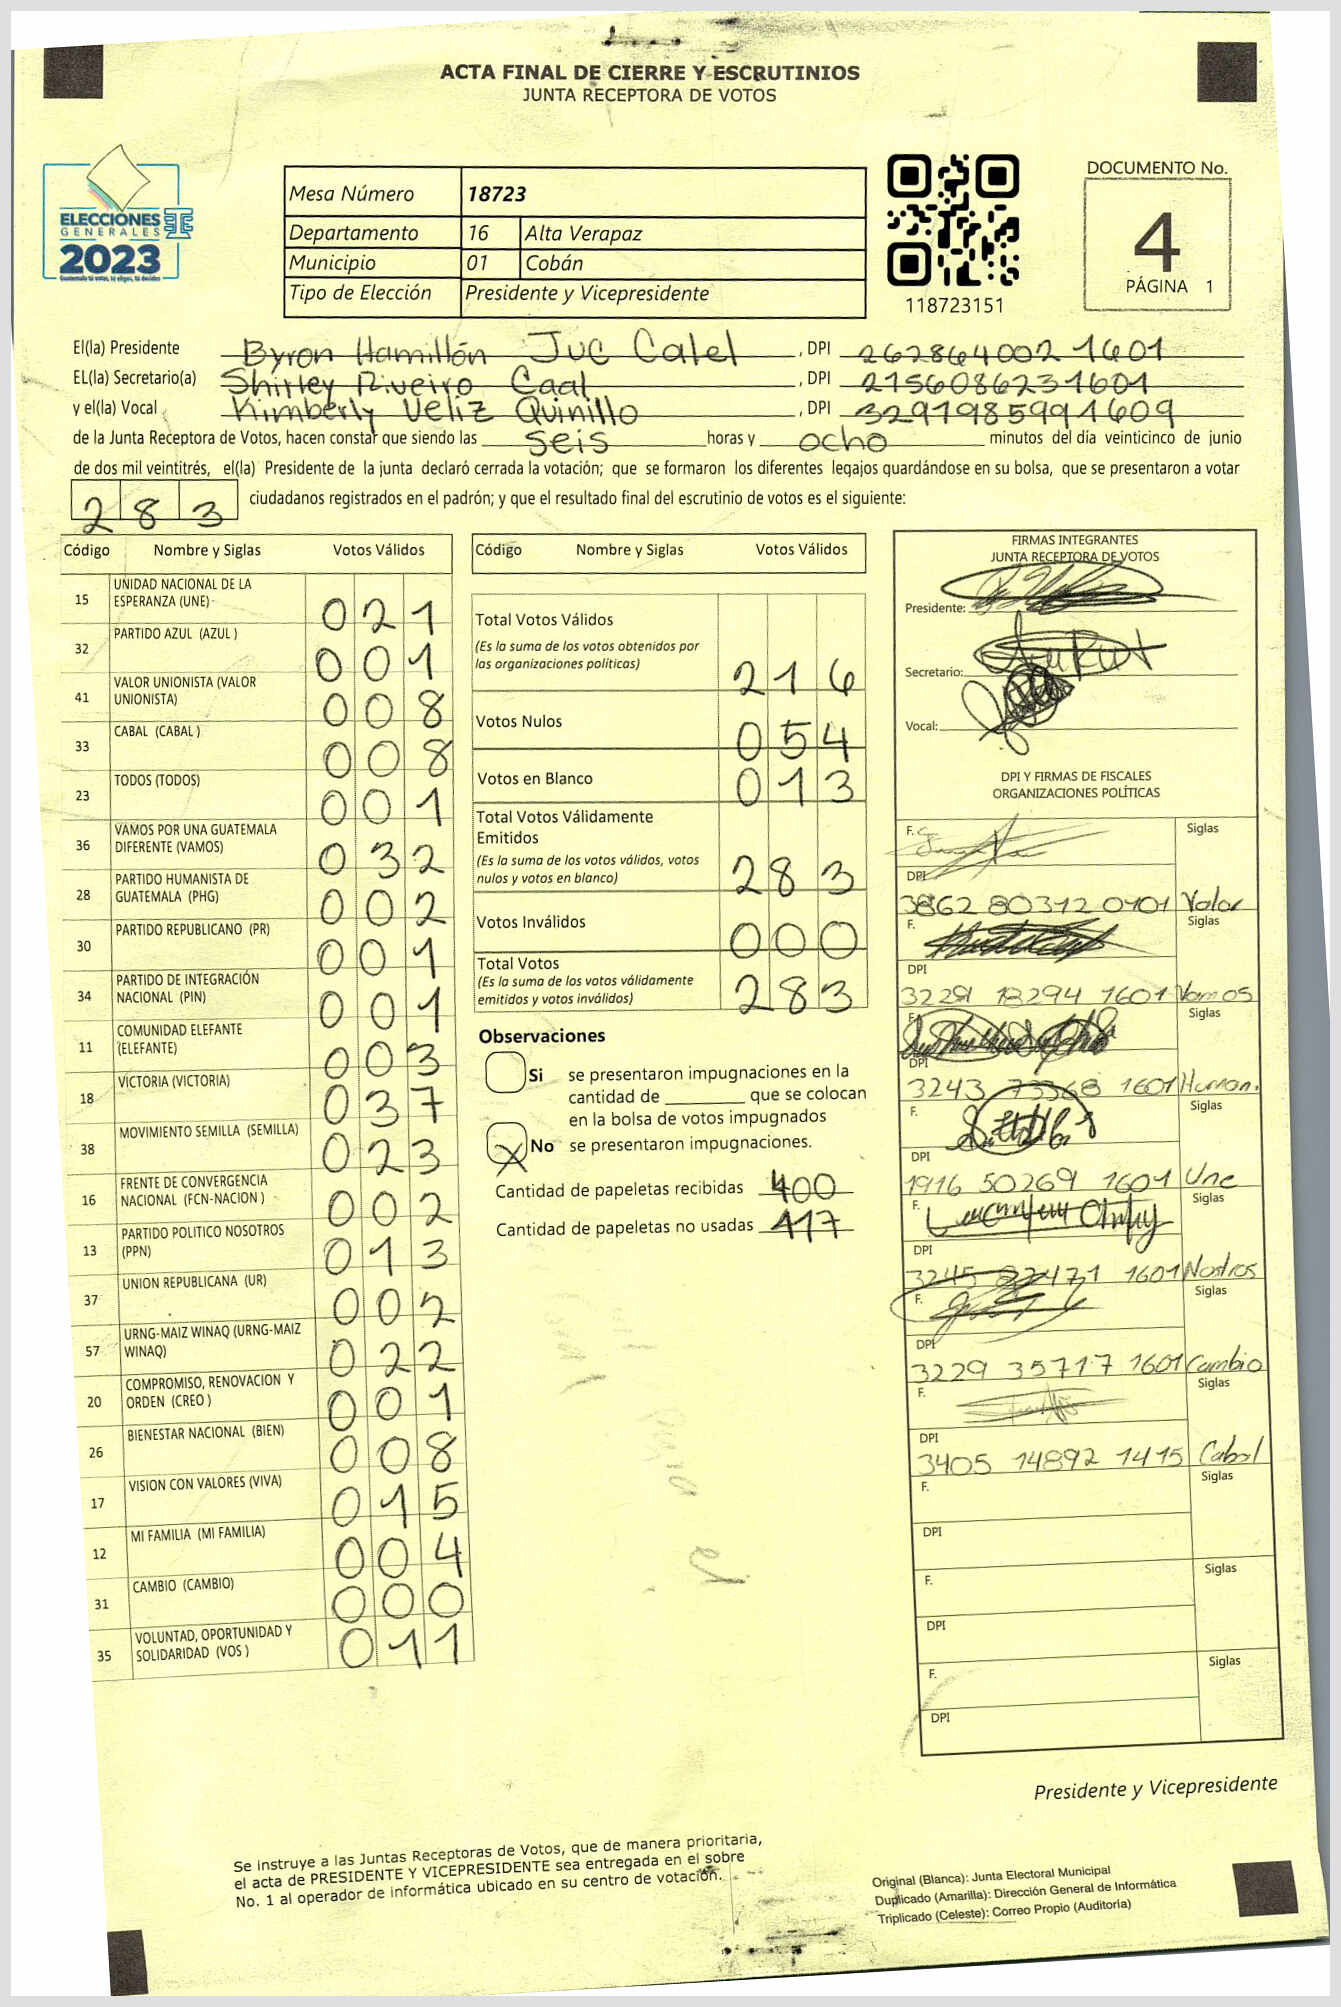 ACTA FINAL DE CIERRE Y ESCRUTINIOS
JUNTA RECEPTORA DE VOTOS
ELECCIONES
GENERALES
2023
Mesa Número 18723
Departamento 16 Alta Verapaz
Municipio 01 Cobán
Tipo de Elección Presidente y Vicepresidente
118723151
DOCUMENTO No.
4
PÁGINA 1
El(la) Presidente Byron Hamillón Juc Calel , DPI 262864002 1601
EL(la) Secretario(a) Shirley Riveiro Caal , DPI 2156086231601
y el(la) Vocal Kimberly Veliz Quinillo , DPI 3291985991609
de la Junta Receptora de Votos, hacen constar que siendo las seis horas y ocho minutos del día veinticinco de junio
de dos mil veintitrés, el(la) Presidente de la junta declaró cerrada la votación; que se formaron los diferentes legajos guardándose en su bolsa, que se presentaron a votar
283 ciudadanos registrados en el padrón; y que el resultado final del escrutinio de votos es el siguiente:
Código Nombre y Siglas Votos Válidos
15 UNIDAD NACIONAL DE LA ESPERANZA (UNE) 021
32 PARTIDO AZUL (AZUL ) 001
41 VALOR UNIONISTA (VALOR UNIONISTA) 008
33 CABAL (CABAL ) 008
23 TODOS (TODOS) 001
36 VAMOS POR UNA GUATEMALA DIFERENTE (VAMOS) 032
28 PARTIDO HUMANISTA DE GUATEMALA (PHG) 002
30 PARTIDO REPUBLICANO (PR) 001
34 PARTIDO DE INTEGRACIÓN NACIONAL (PIN) 001
11 COMUNIDAD ELEFANTE (ELEFANTE) 003
18 VICTORIA (VICTORIA) 037
38 MOVIMIENTO SEMILLA (SEMILLA) 023
16 FRENTE DE CONVERGENCIA NACIONAL (FCN-NACION ) 002
13 PARTIDO POLITICO NOSOTROS (PPN) 013
37 UNION REPUBLICANA (UR) 002
57 URNG-MAIZ WINAQ (URNG-MAIZ WINAQ) 022
20 COMPROMISO, RENOVACION Y ORDEN (CREO ) 001
26 BIENESTAR NACIONAL (BIEN) 008
17 VISION CON VALORES (VIVA) 015
12 MI FAMILIA (MI FAMILIA) 004
31 CAMBIO (CAMBIO) 000
35 VOLUNTAD, OPORTUNIDAD Y SOLIDARIDAD (VOS ) 011
Código Nombre y Siglas Votos Válidos
Total Votos Válidos
(Es la suma de los votos obtenidos por
las organizaciones políticas) 216
Votos Nulos 054
Votos en Blanco 013
Total Votos Válidamente
Emitidos
(Es la suma de los votos válidos, votos
nulos y votos en blanco) 283
Votos Inválidos 000
Total Votos
(Es la suma de los votos válidamente
emitidos y votos inválidos) 283
Observaciones
Si se presentaron impugnaciones en la
cantidad de ________ que se colocan
en la bolsa de votos impugnados
X No se presentaron impugnaciones.
Cantidad de papeletas recibidas 400
Cantidad de papeletas no usadas 417
FIRMAS INTEGRANTES
JUNTA RECEPTORA DE VOTOS
Presidente:
Secretario:
Vocal:
DPI Y FIRMAS DE FISCALES
ORGANIZACIONES POLÍTICAS
F. Siglas
DPI
3862 80312 0101 Valor
F. Siglas
DPI
3229 18294 1601 Vamos
F. Siglas
DPI
3243 73368 1601 Human.
F. Siglas
DPI
1916 50269 1601 Une
F. Siglas
DPI
3245 82471 1601 Nostros
F. Siglas
DPI
3229 35717 1601 Cambio
F. Siglas
DPI
3405 14892 1415 Cabal
F. Siglas
DPI
F. Siglas
DPI
F. Siglas
DPI
Presidente y Vicepresidente
Se instruye a las Juntas Receptoras de Votos, que de manera prioritaria,
el acta de PRESIDENTE Y VICEPRESIDENTE sea entregada en el sobre
No. 1 al operador de informática ubicado en su centro de votación.
Original (Blanca): Junta Electoral Municipal
Duplicado (Amarilla): Dirección General de Informática
Triplicado (Celeste): Correo Propio (Auditoría)